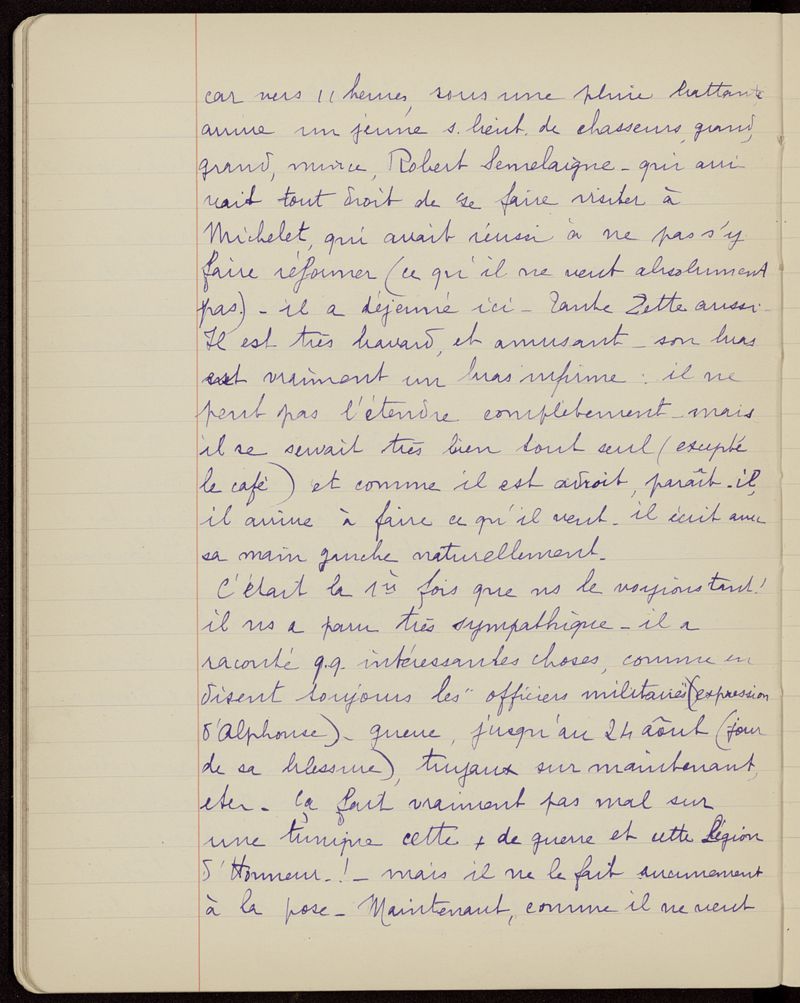 car vers 11 heures, sous une pluie battante
arrive un jeune s. lieut. de chasseurs, grand,
grand, mince, Robert Semelaigne - qui arri
vait tout droit de se faire visiter à
Michelet, qui avait réussi à ne pas s'y
faire réformer (ce qu'il ne veut absolument
pas.) - il a déjeuné ici - Tante Zette aussi -
Il est très bavard, et amusant - son bras
est vraiment un bras infirme : il ne
peut pas l'étendre complètement - mais
il se servait très bien tout seul (excepté
le café) et comme il est adroit, paraît-il,
il arrive à faire ce qu'il veut - il écrit avec
sa main gauche naturellement -
C'était la 1ère fois que ns le voyions tant !
il ns a paru très sympathique - il a
raconté q.q. intéressantes choses, comme en
disent toujours les "officiers militaires" (expression
d'Alphonse) - guerre, jusqu'au 24 août (jour
de sa blessure), tuyaux sur maintenant,
etcr - Ça fait vraiment pas mal sur
une tunique cette + de guerre et cette Légion
d'Honneur - ! - mais il ne le fait aucunement
à la pose - Maintenant, comme il ne veut